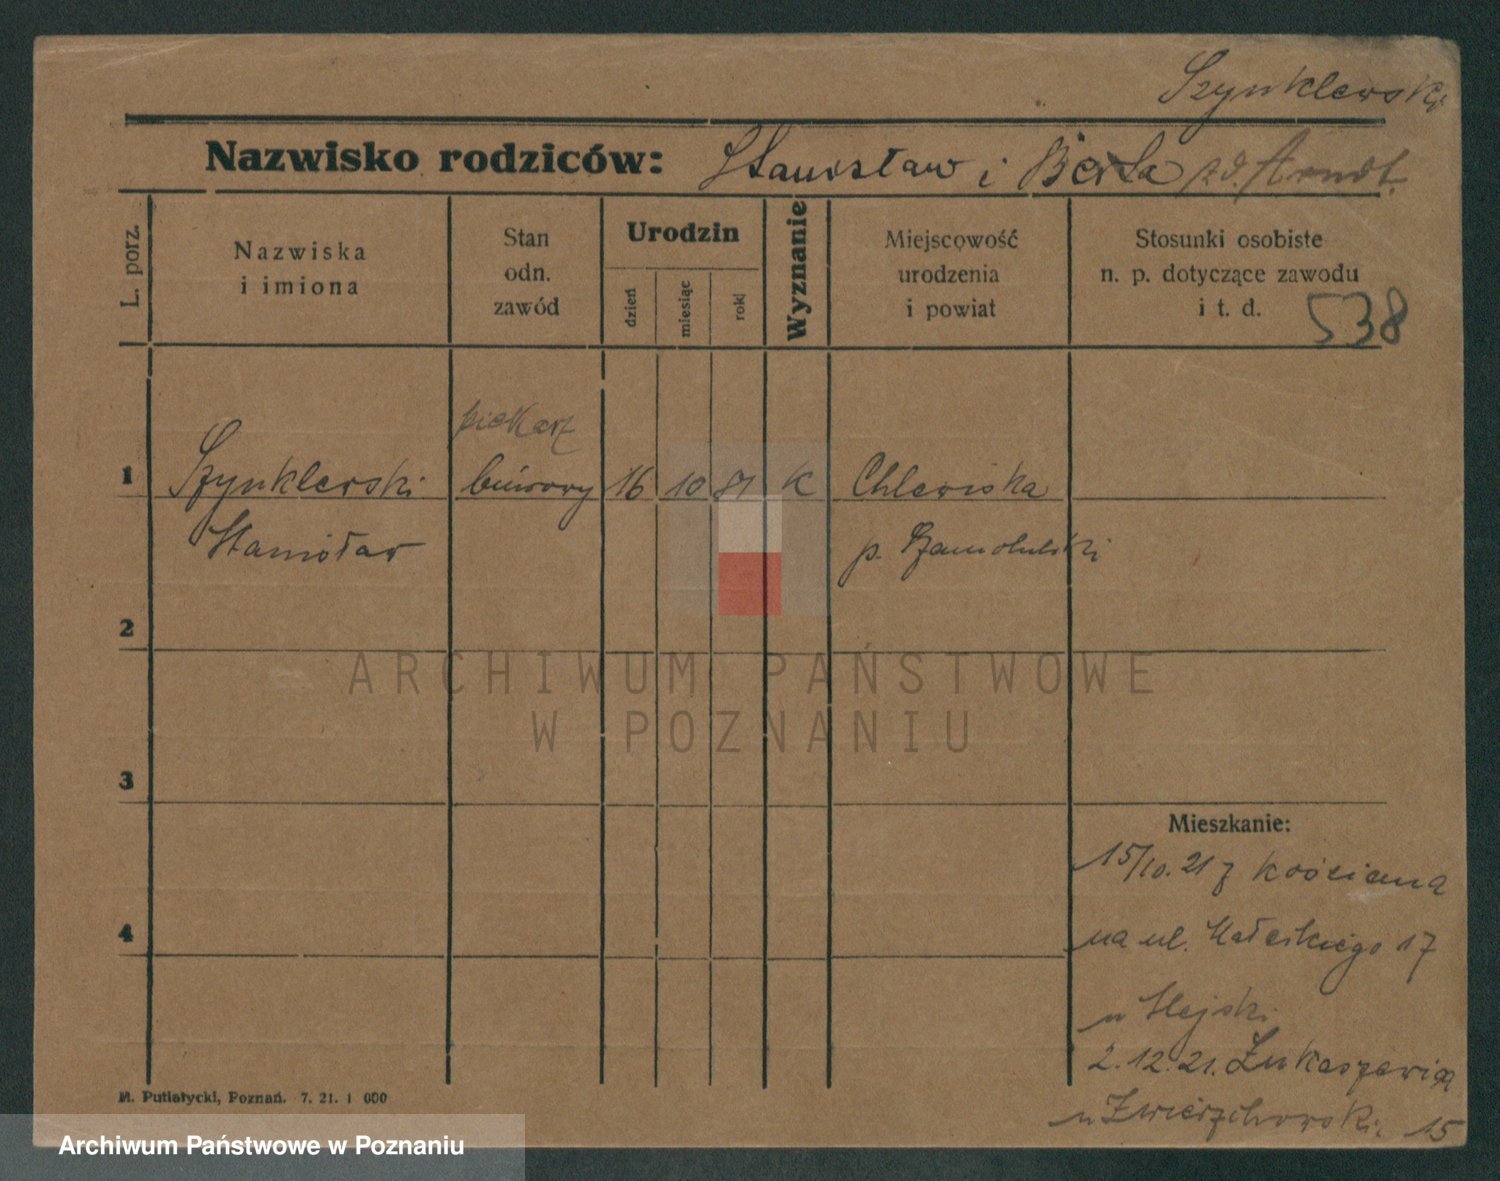 Szynklewski
Nazwisko rodziców: Stanisław i Berta zd. Arndt.
L. porz.
Nazwiska
i imiona
Stan
odn.
zawód
Urodzin
dzień
miesiąc
rok
Wyznanie
Miejscowość
urodzenia
i powiat
Stosunki osobiste
n. p. dotyczące zawodu
i t. d.
538
piekarz
1 Szynklewski biurowy 16 10 81 K Chlewiska
Stanisław p. Szamotulski
2
3
4
Mieszkanie:
15/10. 21 z Kościana
na ul. Małeckiego 17
u
2.12.21. Łukaszewicza
u Zwierzchowski 15
M. Putiatycki, Poznań. 7. 21. 1 000
ARCHIWUM PAŃSTWOWE
W POZNANIU
Archiwum Państwowe w Poznaniu